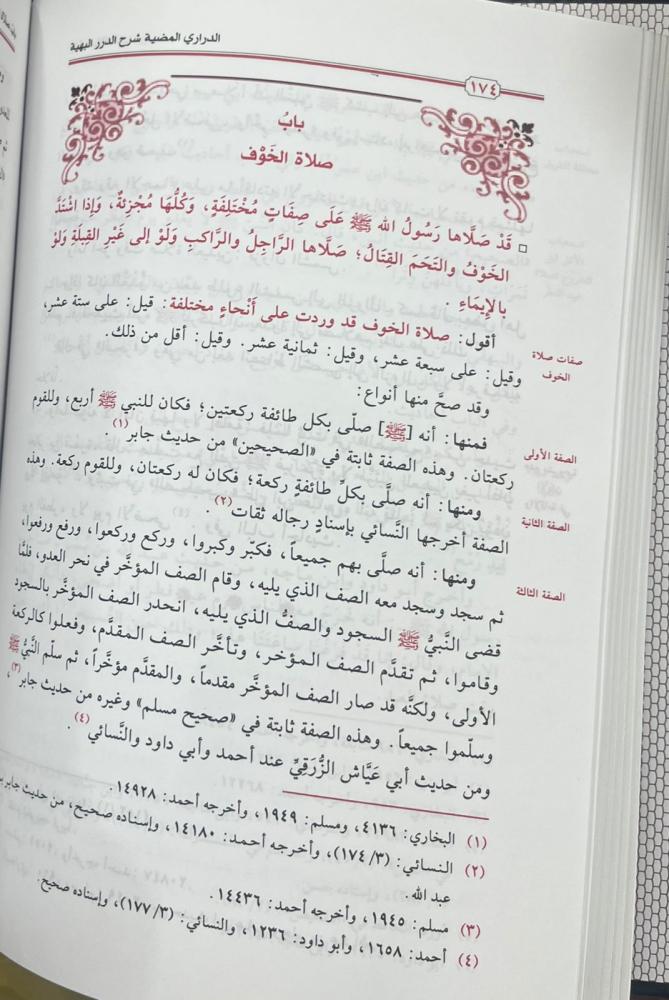 الدراري المضية شرح الدرر البهية
١٧٤
بابُ
صلاة الخَوْف
□ قَدْ صَلَّاها رَسُولُ الله ﷺ عَلَى صِفَاتٍ مُخْتَلِفَةٍ، وَكُلُّهَا مُجْزِئَةٌ، وَإِذَا اشْتَدَّ
الخَوْفُ والتَحَمَ القِتَالُ؛ صَلَّاها الرَّاجِلُ والرَّاكبُ وَلَوْ إلى غَيْرِ القِبلَةِ وَلَوْ
بالإيمَاءِ.
أقول: صلاة الخوف قد وردت على أنْحاءٍ مختلفة: قيل: على ستة عشر،
وقيل: على سبعة عشر، وقيل: ثمانية عشر. وقيل: أقل من ذلك.
صفات صلاة
الخوف
وقد صحَّ منها أنواع:
فمنها: أنه [ﷺ] صلّى بكل طائفة ركعتين؛ فكان للنبي ﷺ أربع، وللقوم
ركعتان. وهذه الصفة ثابتة في «الصحيحين» من حديث جابر(١)
الصفة الأولى
ومنها: أنه صلَّى بكلِّ طائفةٍ ركعة؛ فكان له ركعتان، وللقوم ركعة. وهذه
الصفة أخرجها النَّسائي بإسنادٍ رجاله ثقات(٢).
الصفة الثانية
ومنها: أنه صلَّى بهم جميعاً، فكبّر وكبروا، وركع وركعوا، ورفع ورفعوا،
ثم سجد وسجد معه الصف الذي يليه، وقام الصف المؤخَّر في نحر العدو، فلمَّا
الصفة الثالثة
قضى النَّبيُّ ﷺ السجود والصفُّ الذي يليه، انحدر الصف المؤخَّر بالسجود
وقاموا، ثم تقدَّم الصف المؤخر، وتأخَّر الصف المقدَّم، وفعلوا كالركعة
الأولى، ولكنَّه قد صار الصف المؤخَّر مقدماً، والمقدم مؤخَّراً، ثم سلّم النَّبيُّ ﷺ
وسلَّموا جميعاً. وهذه الصفة ثابتة في «صحيح مسلم» وغيره من حديث جابر(٣)،
ومن حديث أبي عَيَّاش الزُّرَقِيِّ عند أحمد وأبي داود والنَّسائي(٤).
(١) البخاري: ٤١٣٦، ومسلم: ١٩٤٩، وأخرجه أحمد: ١٤٩٢٨.
(٢) النسائي: (٣/ ١٧٤)، وأخرجه أحمد: ١٤١٨٠، وإسناده صحيح، من حديث جابر
عبد الله.
(٣) مسلم: ١٩٤٥، وأخرجه أحمد: ١٤٤٣٦.
(٤) أحمد: ١٦٥٨، وأبو داود: ١٢٣٦، والنسائي: (٣/ ١٧٧)، وإسناده صحيح.